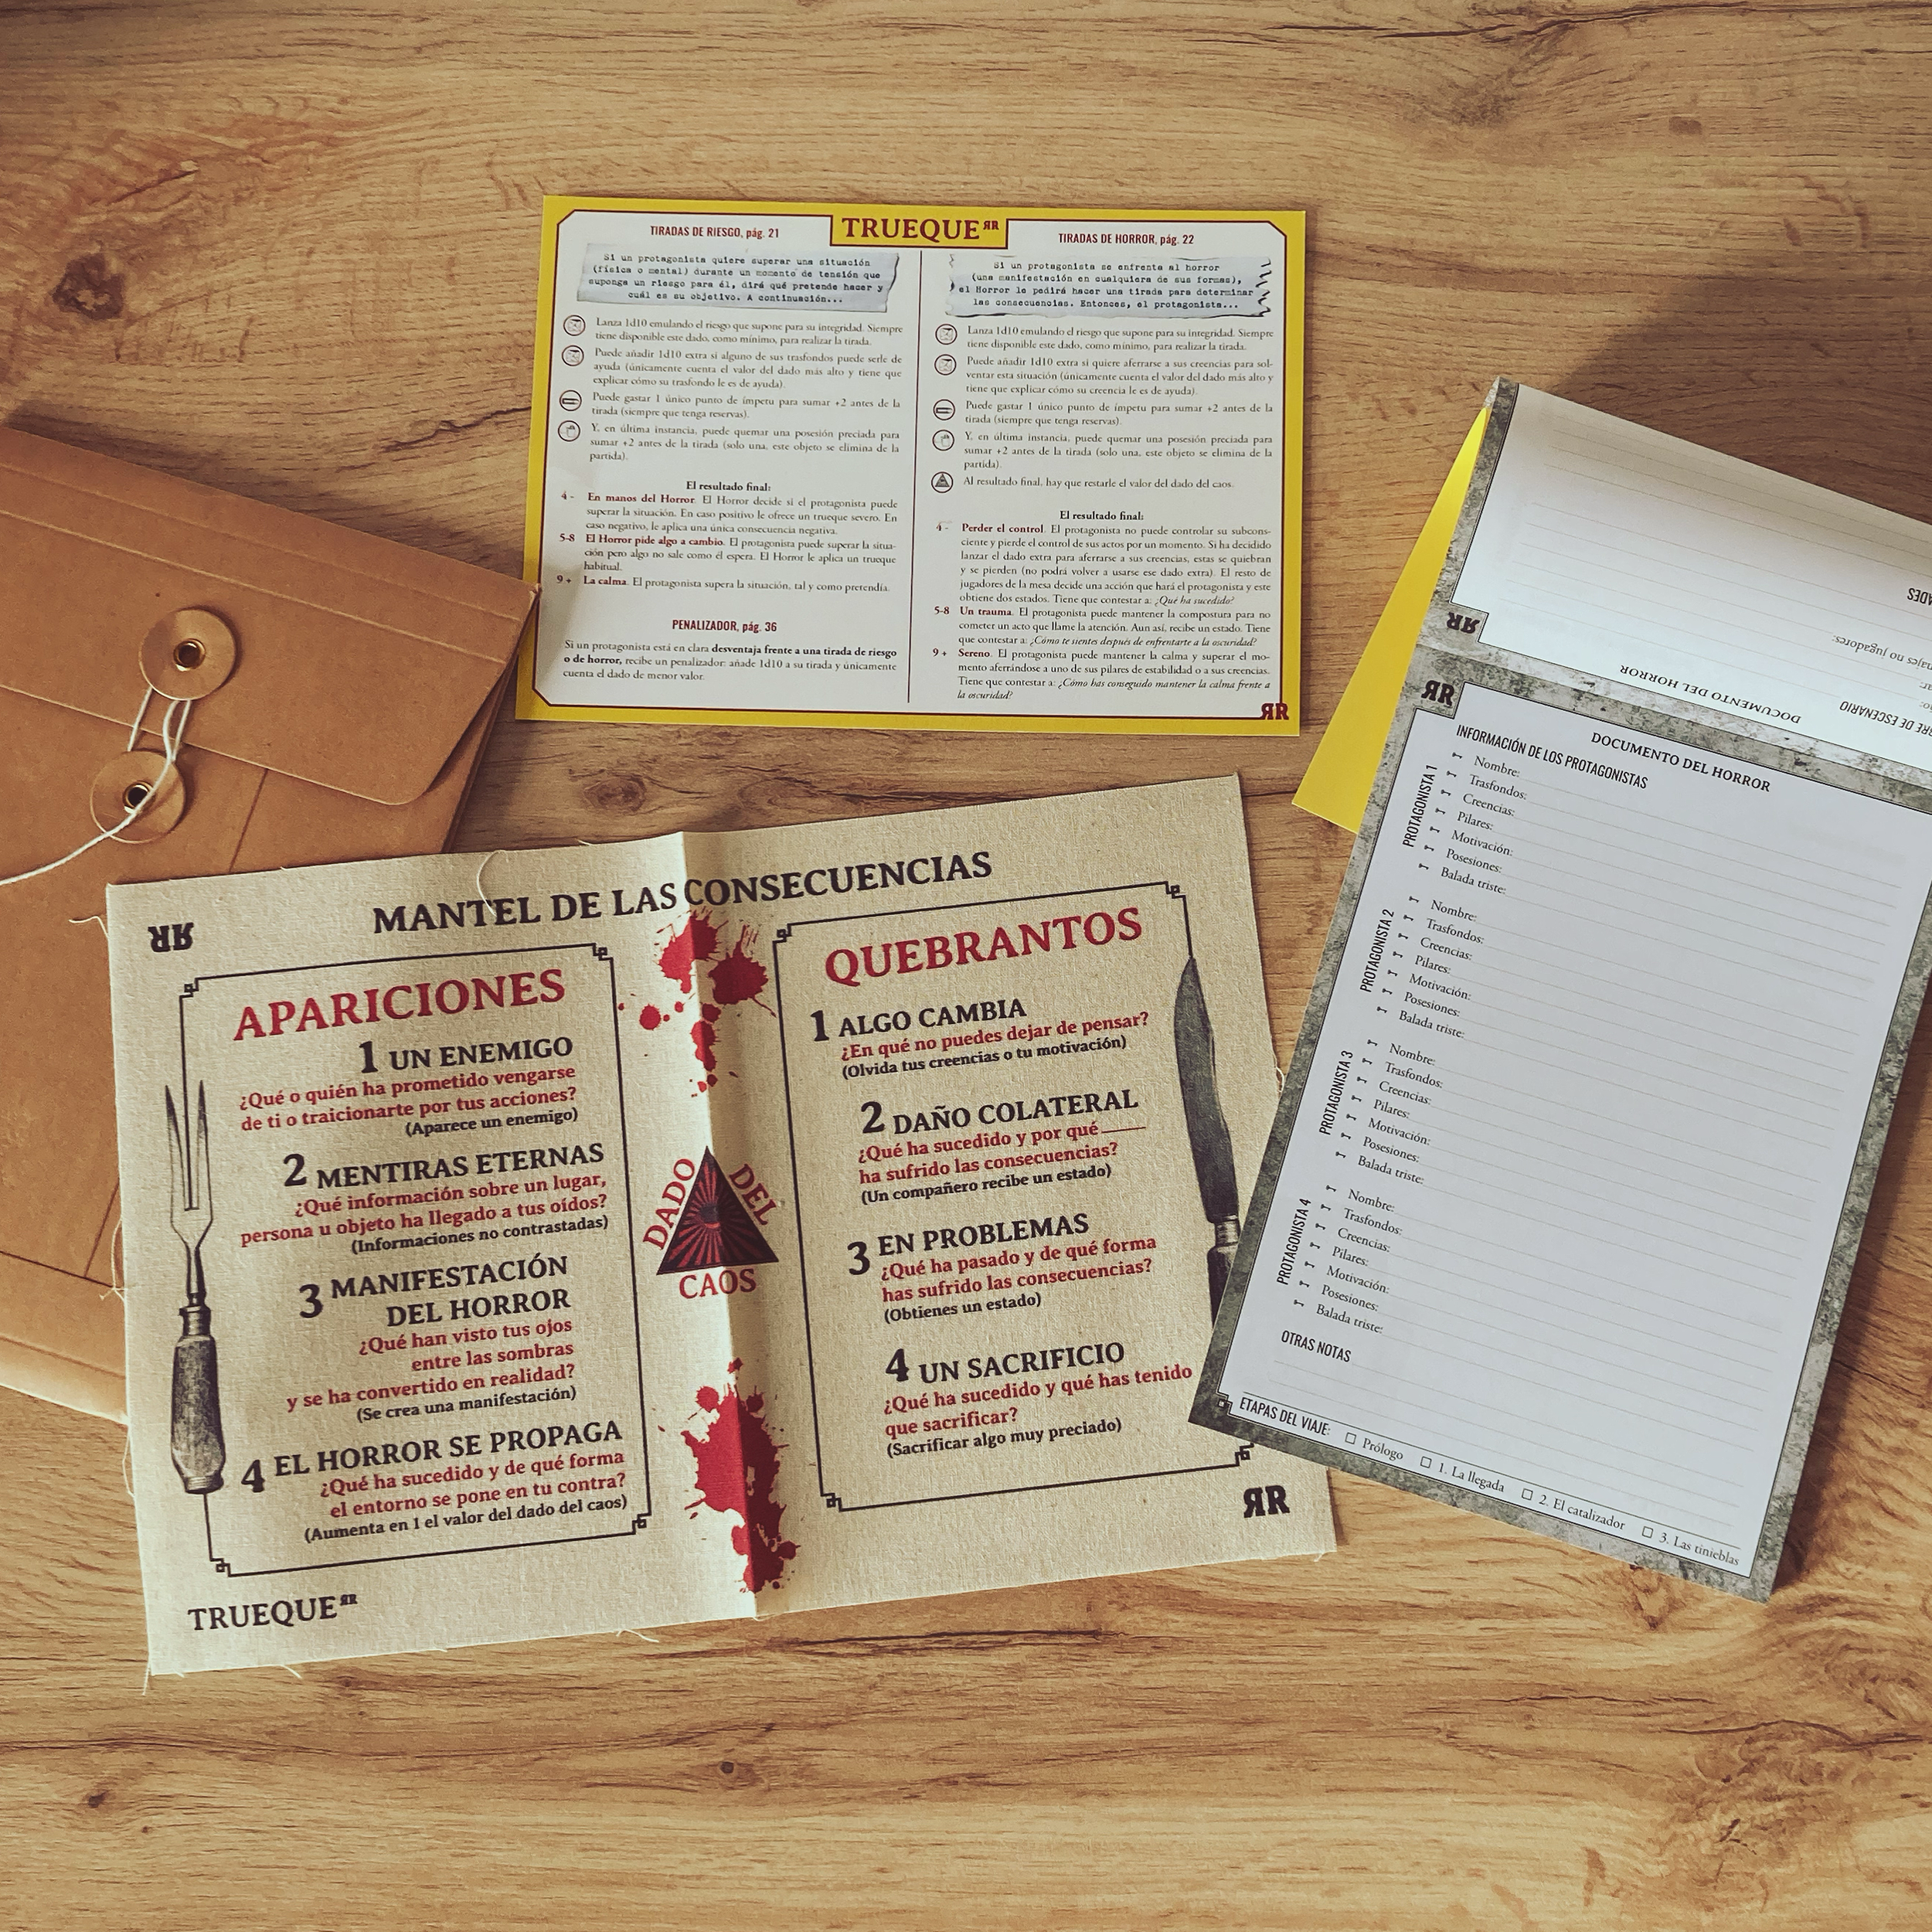 TRUEQUE ЯR
TIRADAS DE RIESGO, pág. 21
Si un protagonista quiere superar una situación
(física o mental) durante un momento de tensión que
suponga un riesgo para él, dirá qué pretende hacer y
cuál es su objetivo. A continuación...
Lanza 1d10 emulando el riesgo que supone para su integridad. Siempre
tiene disponible este dado, como mínimo, para realizar la tirada.
Puede añadir 1d10 extra si alguno de sus trasfondos puede serle de
ayuda (únicamente cuenta el valor del dado más alto y tiene que
explicar cómo su trasfondo le es de ayuda).
Puede gastar 1 único punto de ímpetu para sumar +2 antes de la
tirada (siempre que tenga reservas).
Y, en última instancia, puede quemar una posesión preciada para
sumar +2 antes de la tirada (solo una, este objeto se elimina de la
partida).
El resultado final:
4 - En manos del Horror. El Horror decide si el protagonista puede
superar la situación. En caso positivo le ofrece un trueque severo. En
caso negativo, le aplica una única consecuencia negativa.
5-8 El Horror pide algo a cambio. El protagonista puede superar la situa-
ción pero algo no sale como él espera. El Horror le aplica un trueque
habitual.
9 + La calma. El protagonista supera la situación, tal y como pretendía.
PENALIZADOR, pág. 36
Si un protagonista está en clara desventaja frente a una tirada de riesgo
o de horror, recibe un penalizador: añade 1d10 a su tirada y únicamente
cuenta el dado de menor valor.
TIRADAS DE HORROR, pág. 22
Si un protagonista se enfrenta al horror
(una manifestación en cualquiera de sus formas),
el Horror le pedirá hacer una tirada para determinar
las consecuencias. Entonces, el protagonista...
Lanza 1d10 emulando el riesgo que supone para su integridad. Siempre
tiene disponible este dado, como mínimo, para realizar la tirada.
Puede añadir 1d10 extra si quiere aferrarse a sus creencias para sol-
ventar esta situación (únicamente cuenta el valor del dado más alto y
tiene que explicar cómo su creencia le es de ayuda).
Puede gastar 1 único punto de ímpetu para sumar +2 antes de la
tirada (siempre que tenga reservas).
Y, en última instancia, puede quemar una posesión preciada para
sumar +2 antes de la tirada (solo una, este objeto se elimina de la
partida).
Al resultado final, hay que restarle el valor del dado del caos.
El resultado final:
4 - Perder el control. El protagonista no puede controlar su subcons-
ciente y pierde el control de sus actos por un momento. Si ha decidido
lanzar el dado extra para aferrarse a sus creencias, estas se quiebran
y se pierden (no podrá volver a usarse ese dado extra). El resto de
jugadores de la mesa decide una acción que hará el protagonista y este
obtiene dos estados. Tiene que contestar a: ¿Qué ha sucedido?
5-8 Un trauma. El protagonista puede mantener la compostura para no
cometer un acto que llame la atención. Aun así, recibe un estado. Tiene
que contestar a: ¿Cómo te sientes después de enfrentarte a la oscuridad?
9 + Sereno. El protagonista puede mantener la calma y superar el mo-
mento aferrándose a uno de sus pilares de estabilidad o a sus creencias.
Tiene que contestar a: ¿Cómo has conseguido mantener la calma frente a
la oscuridad?
ЯR
MANTEL DE LAS CONSECUENCIAS
ЯR
APARICIONES
1 UN ENEMIGO
¿Qué o quién ha prometido vengarse
de ti o traicionarte por tus acciones?
(Aparece un enemigo)
2 MENTIRAS ETERNAS
¿Qué información sobre un lugar,
persona u objeto ha llegado a tus oídos?
(Informaciones no contrastadas)
3 MANIFESTACIÓN
DEL HORROR
¿Qué han visto tus ojos
entre las sombras
y se ha convertido en realidad?
(Se crea una manifestación)
4 EL HORROR SE PROPAGA
¿Qué ha sucedido y de qué forma
el entorno se pone en tu contra?
(Aumenta en 1 el valor del dado del caos)
TRUEQUE ЯR
DADO DEL
CAOS
QUEBRANTOS
1 ALGO CAMBIA
¿En qué no puedes dejar de pensar?
(Olvida tus creencias o tu motivación)
2 DAÑO COLATERAL
¿Qué ha sucedido y por qué ____
ha sufrido las consecuencias?
(Un compañero recibe un estado)
3 EN PROBLEMAS
¿Qué ha pasado y de qué forma
has sufrido las consecuencias?
(Obtienes un estado)
4 UN SACRIFICIO
¿Qué ha sucedido y qué has tenido
que sacrificar?
(Sacrificar algo muy preciado)
ЯR
ЯR
DOCUMENTO DEL HORROR
no jugadores:
DE ESCENARIO
ЯR
DOCUMENTO DEL HORROR
INFORMACIÓN DE LOS PROTAGONISTAS
PROTAGONISTA 1
Nombre:
Trasfondos:
Creencias:
Pilares:
Motivación:
Posesiones:
Balada triste:
PROTAGONISTA 2
Nombre:
Trasfondos:
Creencias:
Pilares:
Motivación:
Posesiones:
Balada triste:
PROTAGONISTA 3
Nombre:
Trasfondos:
Creencias:
Pilares:
Motivación:
Posesiones:
Balada triste:
PROTAGONISTA 4
Nombre:
Trasfondos:
Creencias:
Pilares:
Motivación:
Posesiones:
Balada triste:
OTRAS NOTAS
ETAPAS DEL VIAJE: ☐ Prólogo ☐ 1. La llegada ☐ 2. El catalizador ☐ 3. Las tinieblas